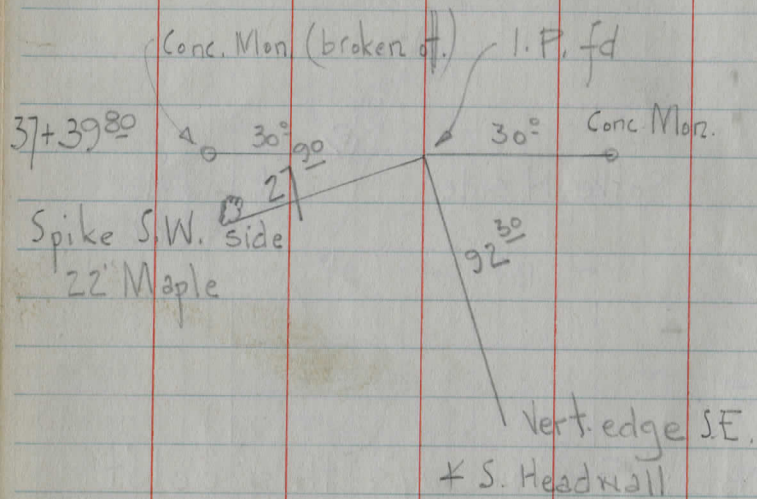 Conc. Mon. (broken off.) I.P. fd
37+39 80 30 0 30 0 Conc. Mon.
27 90
Spike S.W. side
22" Maple
92 30
Vert. edge S.E.
S. Headwall